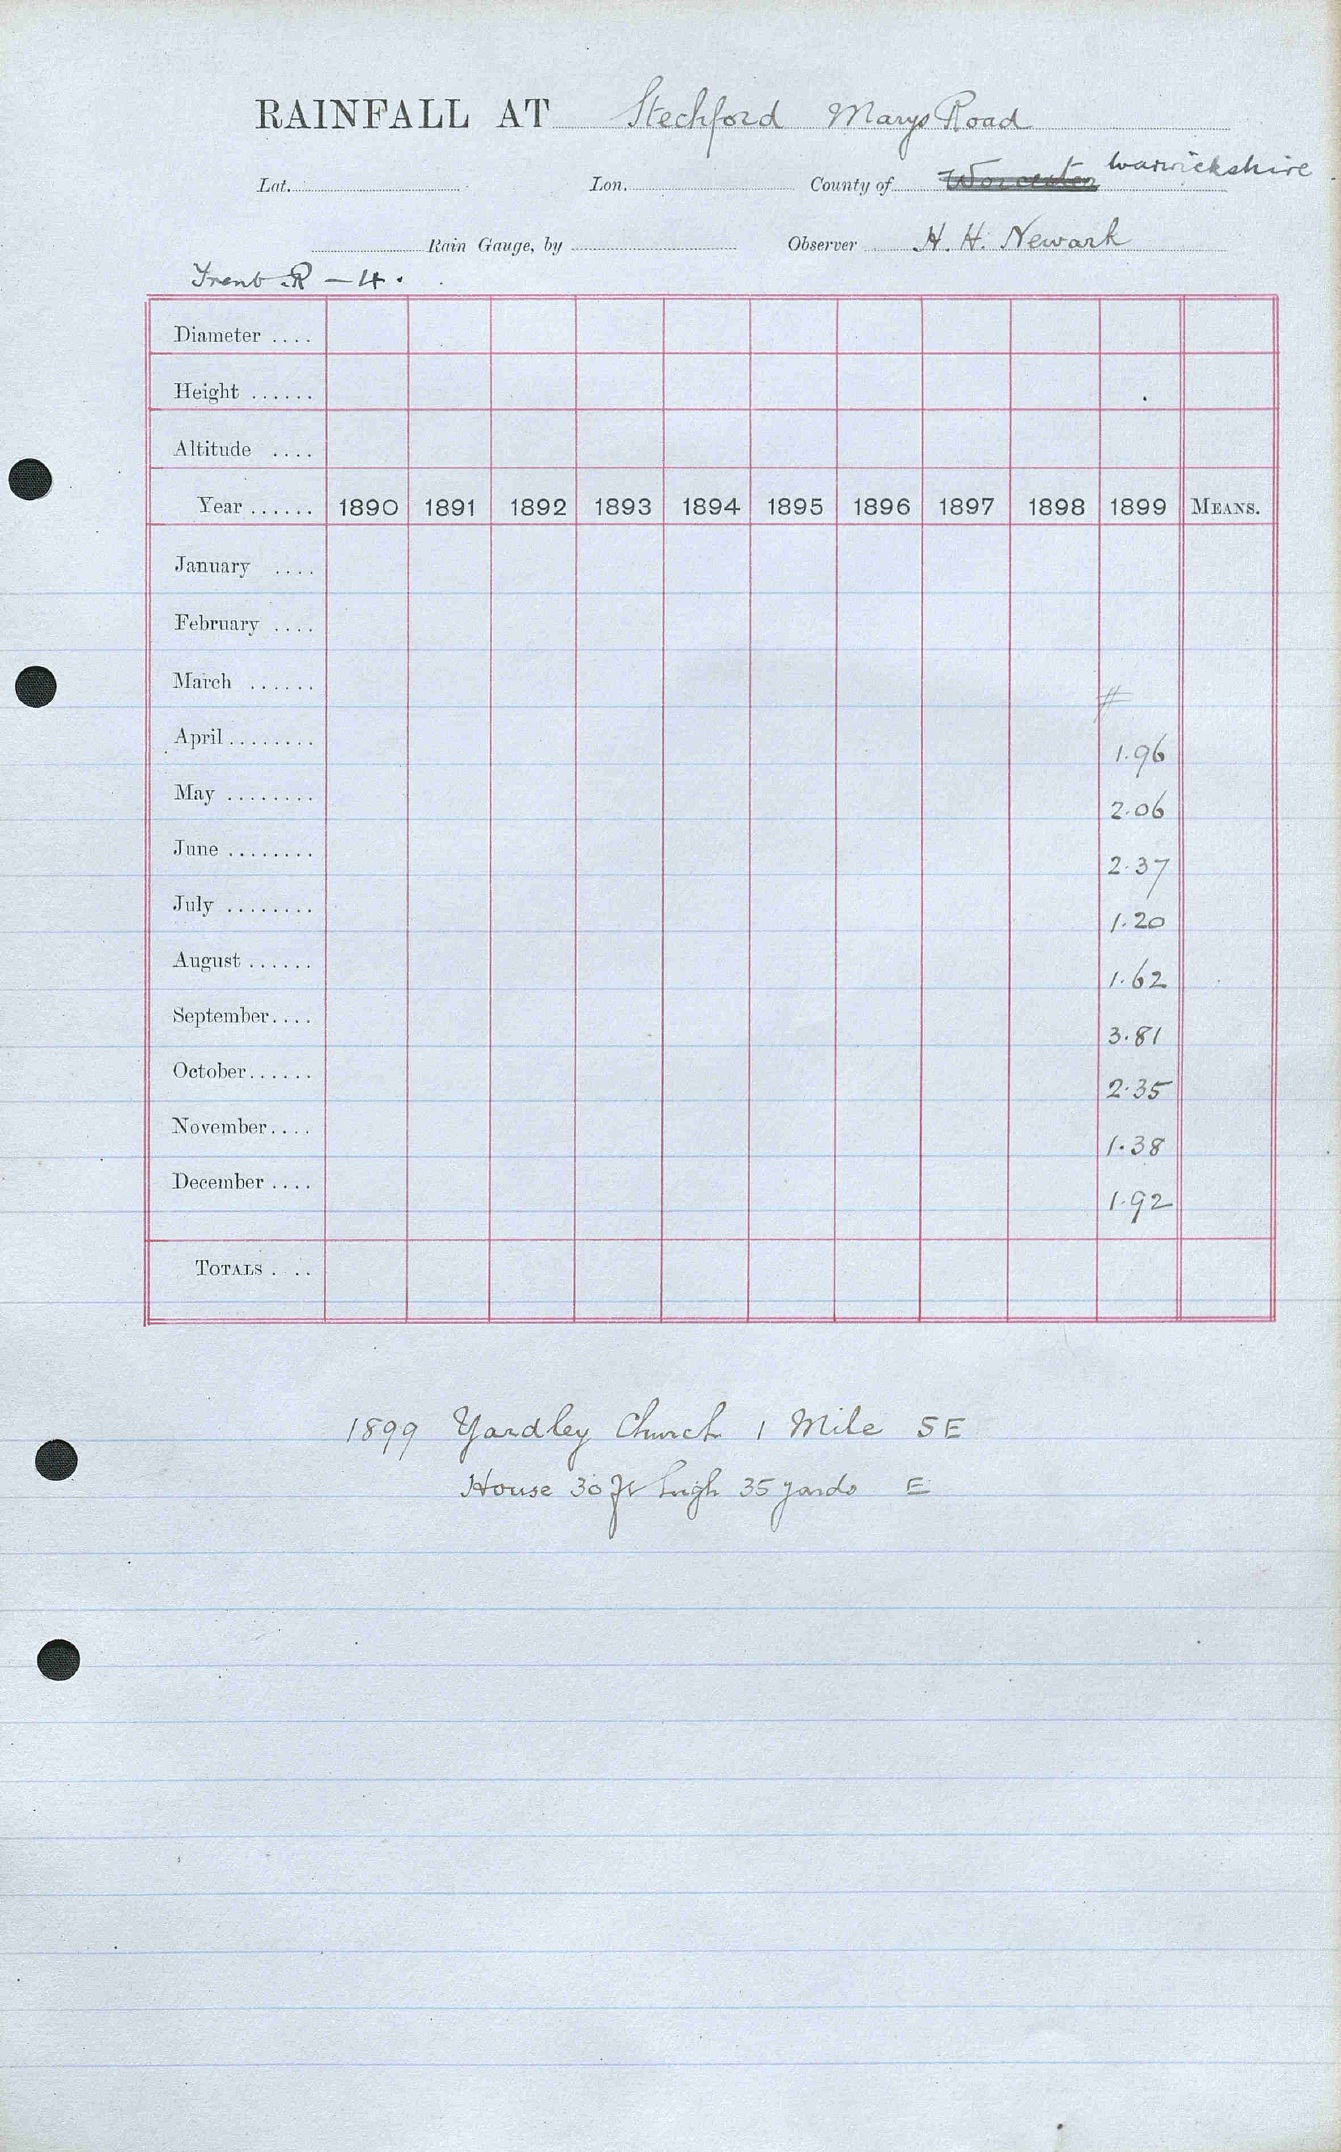 RAINFALL AT Stechford Marys Road
Lat. Lon. County of Worcester Warwickshire
Rain Gauge, by Observer H. H. Newark
Trent R - 4.
Diameter ....
Height ......
Altitude ....
Year ...... 1890 1891 1892 1893 1894 1895 1896 1897 1898 1899 MEANS.
January ....
February ....
March ......
#
April ........ 1.96
May ........ 2.06
June ........ 2.37
July ........ 1.20
August ...... 1.62
September.... 3.81
October...... 2.35
November.... 1.38
December .... 1.92
TOTALS . ..
1899 Yardley Church 1 Mile SE
House 30 ft high 35 yards E